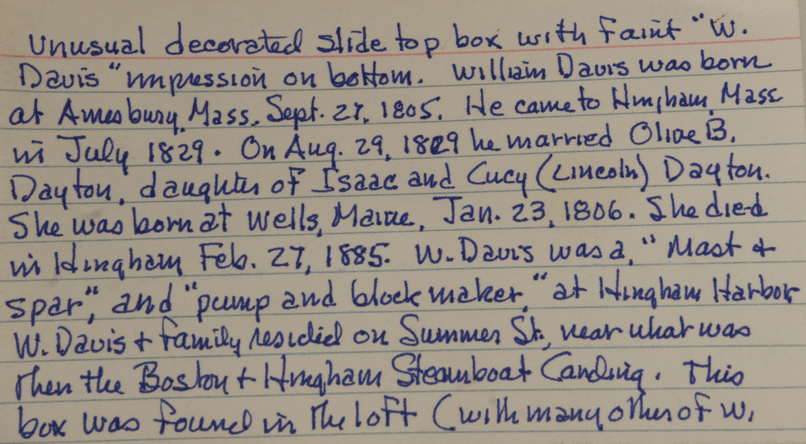 Unusual decorated slide top box with faint "W.
Davis" impression on bottom. William Davis was born
at Amesbury, Mass. Sept. 27, 1805. He came to Hingham, Mass
in July 1829. On Aug. 29, 1829 he married Olive B.
Dayton, daughter of Isaac and Lucy (Lincoln) Dayton.
She was born at Wells, Maine, Jan. 23, 1806. She died
in Hingham Feb. 27, 1885. W. Davis was a, "Mast +
spar", and "pump and block maker," at Hingham Harbor
W. Davis + family resided on Summer St., near what was
then the Boston + Hingham Steamboat Landing. This
box was found in the loft (with many other of W.